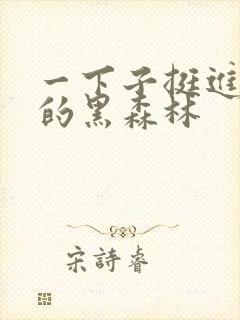 一下子挺进
的黑森林
宋詩睿